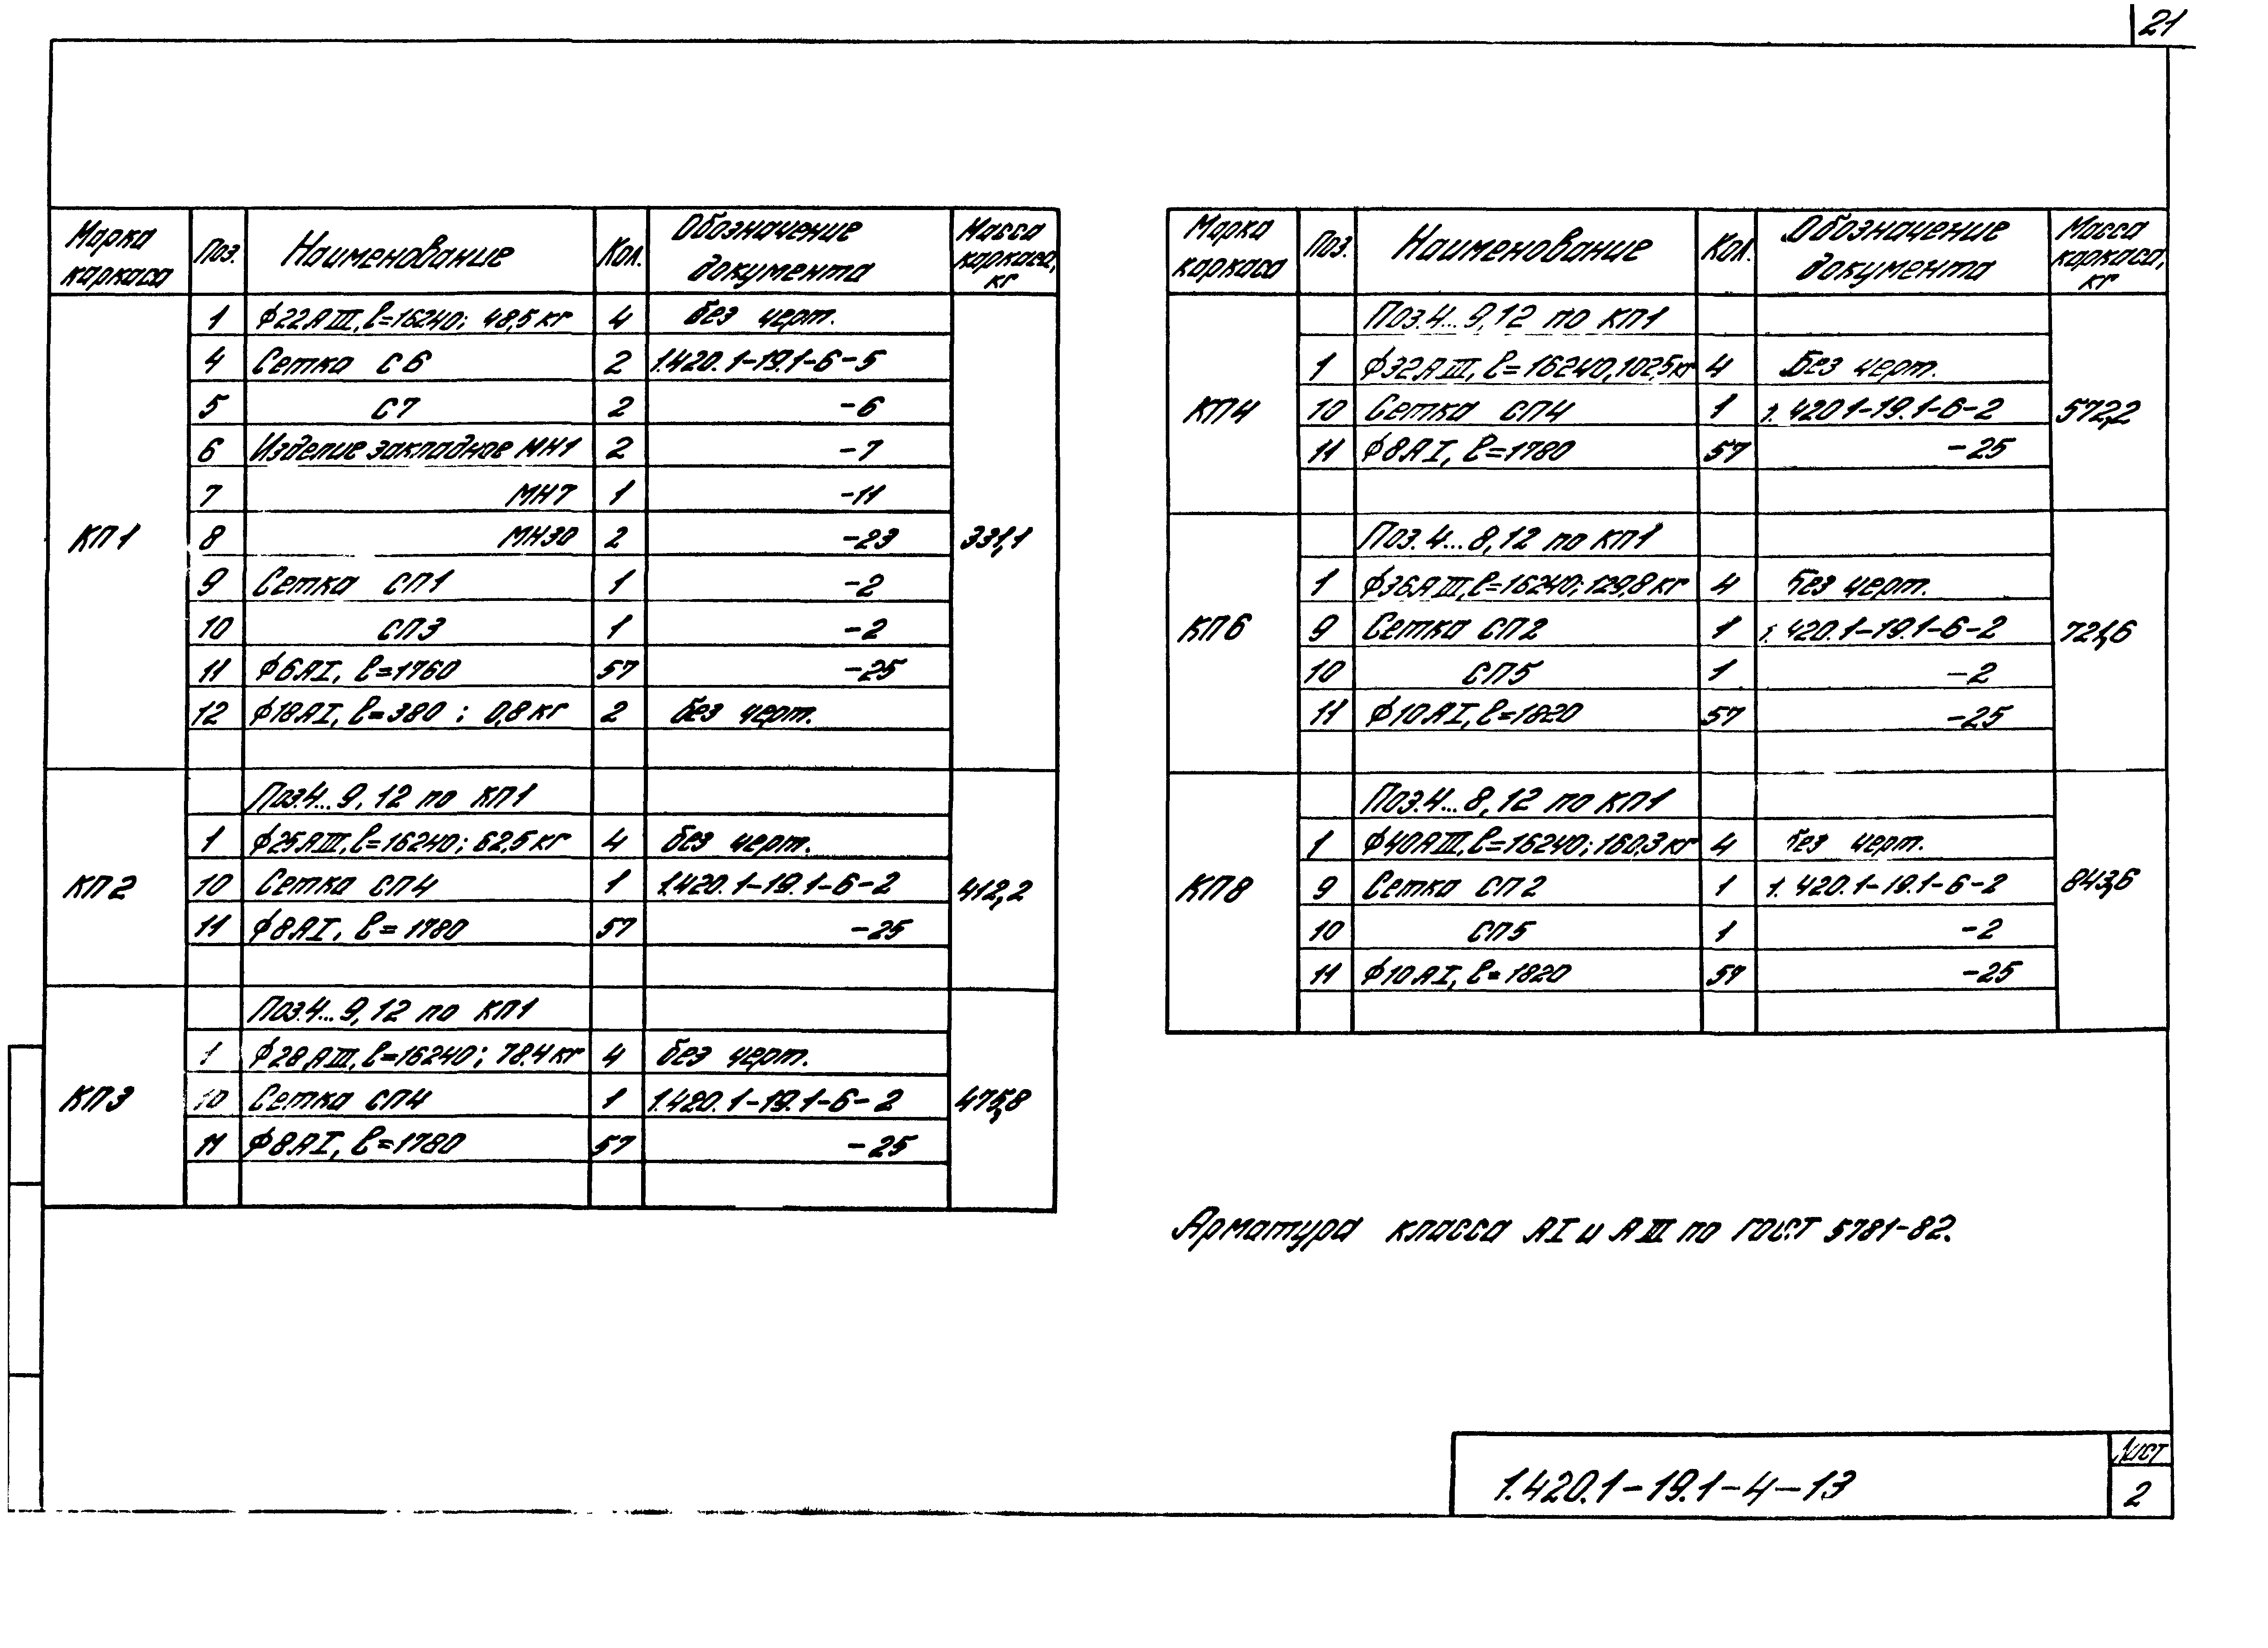 21
Марка каркаса Поз. Наименование Кол. Обозначение документа Масса каркаса, кг
КП1 331,1
1 ф22АIII, ℓ=16240; 48,5 кг 4 без черт.
4 Сетка С6 2 1.420.1-19.1-6-5
5 С7 2 -6
6 Изделие закладное МН1 2 -7
7 МН7 1 -11
8 МН30 2 -23
9 Сетка СП1 1 -2
10 СП3 1 -2
11 ф6АI, ℓ=1760 57 -25
12 ф18АI, ℓ=380 ; 0,8 кг 2 без черт.
КП2 412,2
Поз.4...9,12 по КП1
1 ф25АIII, ℓ=16240; 62,5 кг 4 без черт.
10 Сетка СП4 1 1.420.1-19.1-6-2
11 ф8АI, ℓ=1780 57 -25
КП3 475,8
Поз.4...9,12 по КП1
1 ф28АIII, ℓ=16240; 78,4 кг 4 без черт.
10 Сетка СП4 1 1.420.1-19.1-6-2
11 ф8АI, ℓ=1780 57 -25
Марка каркаса Поз. Наименование Кол. Обозначение документа Масса каркаса, кг
КП4 572,2
Поз.4...9,12 по КП1
1 ф32АIII, ℓ=16240, 102,5 кг 4 Без черт.
10 Сетка СП4 1 1.420.1-19.1-6-2
11 ф8АI, ℓ=1780 57 -25
КП6 721,6
Поз.4...8,12 по КП1
1 ф36АIII, ℓ=16240; 129,8 кг 4 Без черт.
9 Сетка СП2 1 1.420.1-19.1-6-2
10 СП5 1 -2
11 ф10АI, ℓ=1820 57 -25
КП8 843,6
Поз.4...8,12 по КП1
1 ф40АIII, ℓ=16240; 160,3 кг 4 без черт.
9 Сетка СП2 1 1.420.1-19.1-6-2
10 СП5 1 -2
11 ф10АI, ℓ=1820 57 -25
Арматура класса АI и АIII по ГОСТ 5781-82.
1.420.1-19.1-4-13
Лист
2